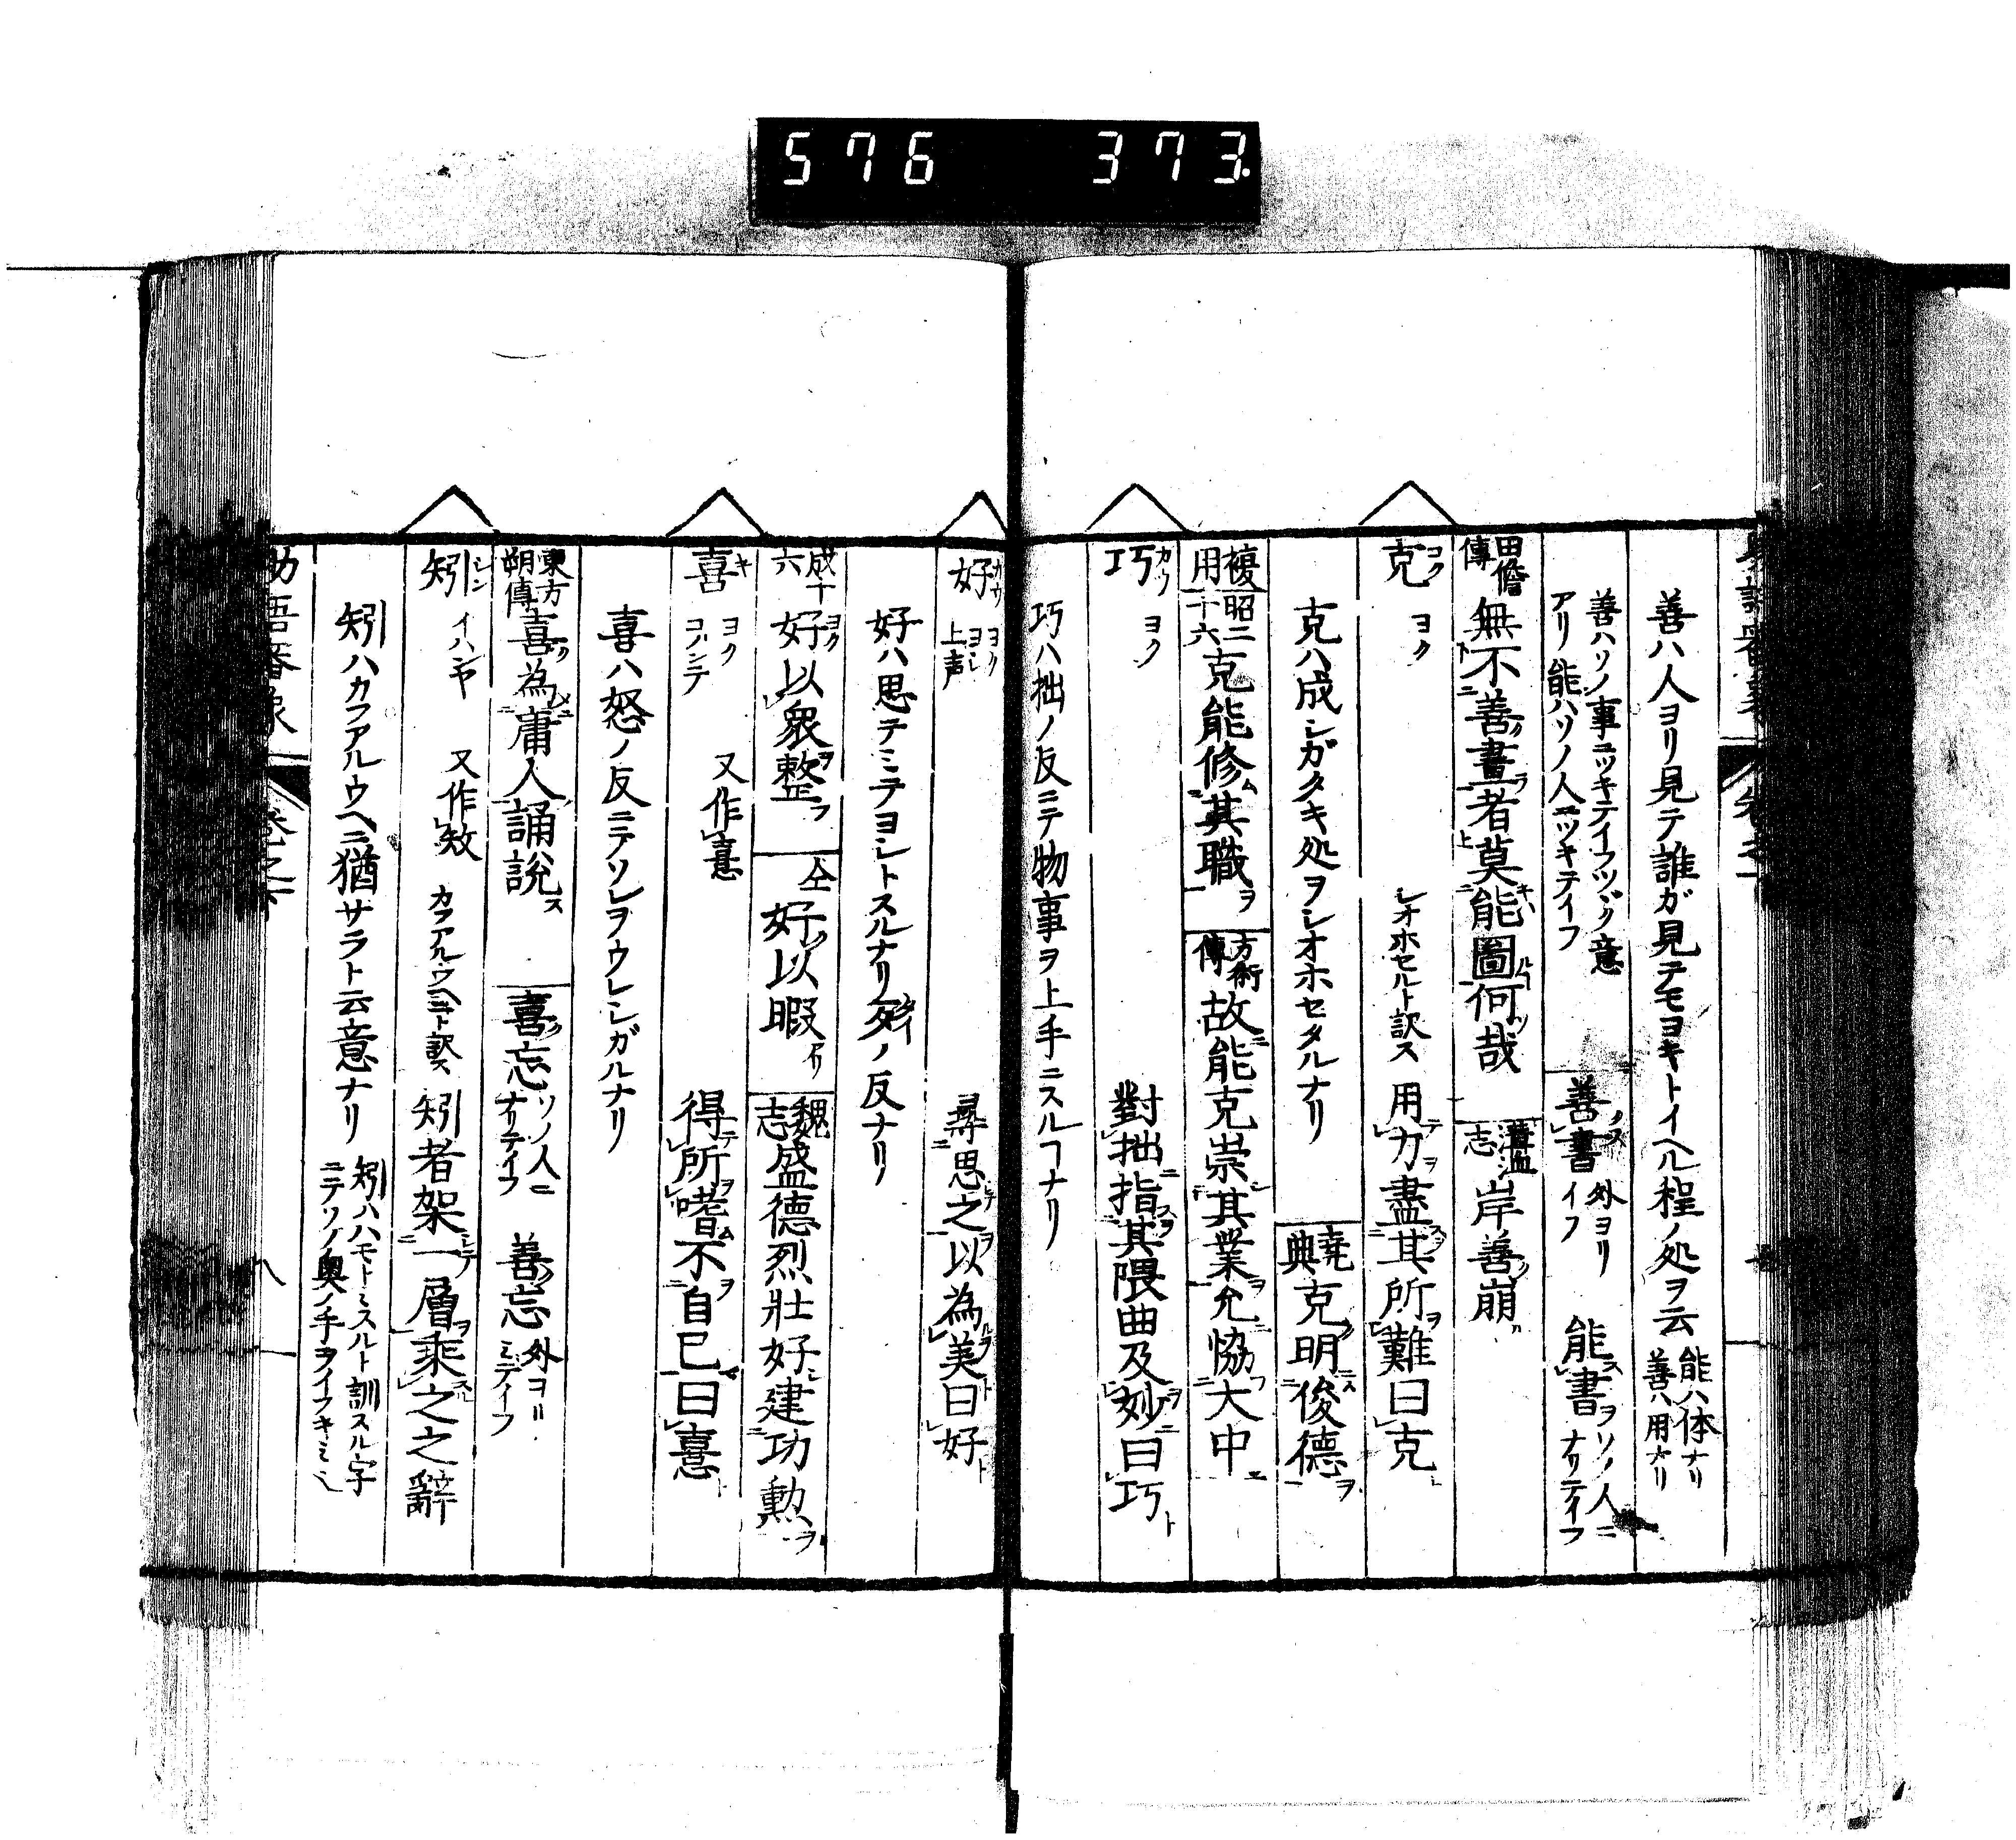 576 373.
善ハ人ヨリ見テ誰ガ見テモヨキトイヘル程ノ処ヲ云 能ハ体ナリ 善ハ用ナリ
善ハソノ事ニツキテイフツヾク意アリ 能ハソノ人ニツキテイフ 善書 外ヨリイフ 能書 ソノ人ニナリテイフ
田儋傳 無不善畫者莫能圖何哉 溝洫志 岸善崩
克 コク ヨク シオホセルト訳ス 用力盡其所難曰克
克ハ成シガタキ処ヲシオホセタルナリ 堯典 克明俊德
複用 昭二十六 克能修其職 方術傳 故能克崇其業允協大中
巧 カウ ヨク 對拙指其隈曲及妙曰巧
巧ハ拙ノ反ニテ物事ヲ上手ニスルヿナリ
好 カウ ヨク ヨシ 上声 尋思之以為美曰好
好ハ思テミテヨシトスルナリ歹ノ反ナリ
成十六 好以衆整 仝 好以暇 魏志 盛德烈壯好建功勲
喜 キ ヨク コノンテ 又作憙 得所嗜不自已曰憙
喜ハ怒ノ反ニテソレヲウレシガルナリ
東方朔傳 喜為庸人誦說 喜忘 ソノ人ニナリテイフ 善忘 外ヨリミテイフ
矧 シン イハンヤ 又作㪨 カフアルウヘニト訳ス 矧者架一層乘之之辭
矧ハカフアルウヘニ猶サラト云意ナリ 矧ハハモトミスルト訓スル字ニテソノ奥ノ手ヲイフキミ也